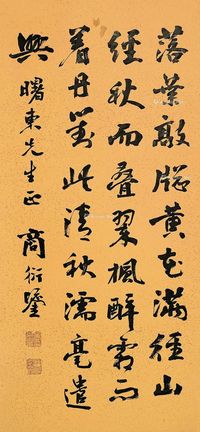 落葉敲牕黃花滿徑山
經秋而疊翠楓醉霜而
着丹對此清秋濡毫遣
興 曙東先生正 商衍鎏